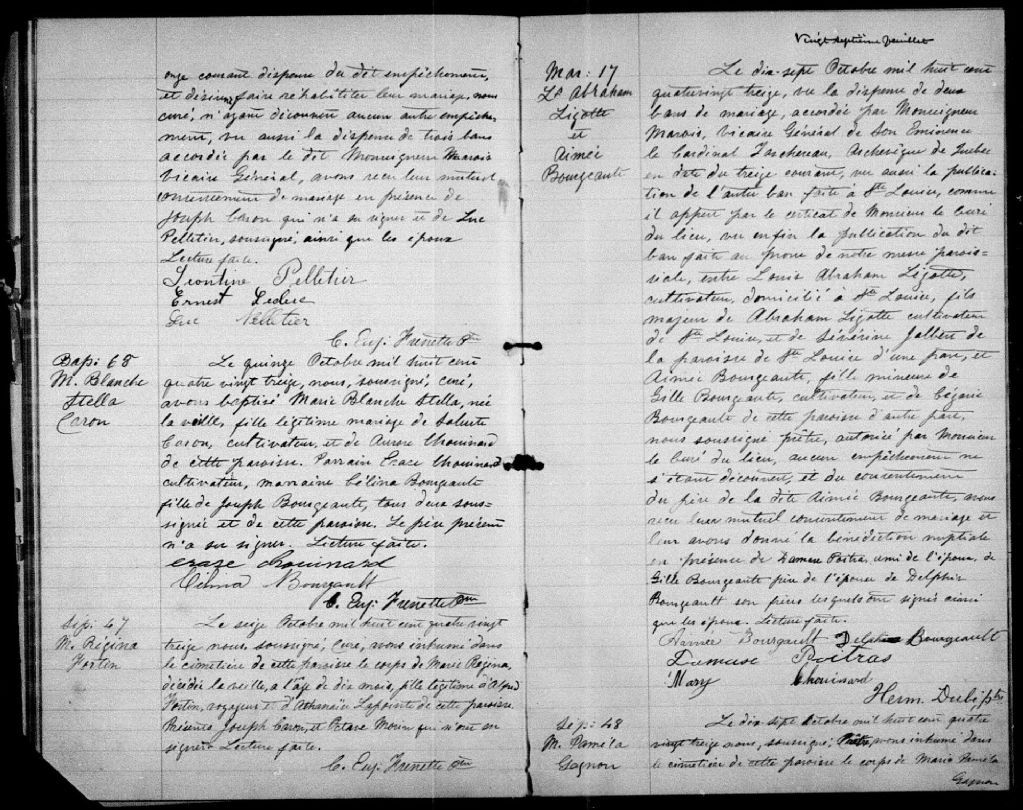 onze courant dispense du dit empêchement,
et désirant faire réhabiliter leur mariage, nous
curé, n'ayant découvert aucun autre empêche-
ment, vu aussi la dispense de trois bans
accordée par le dit Monseigneur Marois
Vicaire Général, avons reçu leur mutuel
consentement de mariage en présence de
Joseph Caron qui n'a su signer et de Luc
Pelletier, soussigné, ainsi que les époux
Lecture faite.
Leontine Pelletier
Ernest Leclerc
Luc Pelletier
C. Euj. Frenette Ptre
Bap: 68
M. Blanche
Stella
Caron
Le quinze Octobre mil huit cent
quatre vingt treize, nous, soussigné, curé,
avons baptisé Marie Blanche Stella, née
la veille, fille légitime mariage de Saluste
Caron, cultivateur, et de Aurore Chouinard
de cette paroisse. Parrain Exace Chouinard
cultivateur, marraine Célina Bourgeault
fille de Joseph Bourgeault, tous deux sous-
signés et de cette paroisse. Le père présent
n'a su signer. Lecture faite.
exase Chouinard
Bourgault
C. Euj. Frenette Ptre
Sép: 47
M. Régina
Fortin
Le seize Octobre mil huit cent quatre vingt
treize nous, soussigné, Curé, avons inhumé dans
le cimetière de cette paroisse le corps de Marie Régina,
décédée la veille, à l'âge de dix mois, fille légitime d'Alfred
Fortin, voyageur et d'Athanaïse Lapointe de cette paroisse.
Présents Joseph Caron et Octave Morin qui n'ont su
signer. Lecture faite.
C. Euj. Frenette Ptre
Vingt septième feuillet
Mar: 17
Ls Abraham
Ligotte
et
Aimée
Bourgeault
Le dix-sept Octobre mil huit cent
quatrevingt treize, vu la dispense de deux
bans de mariage, accordée par Monseigneur
Marois, vicaire Général de Son Eminence
le Cardinal Taschereau, Archevêque de Québec
en date du treize courant, vu aussi la publica-
tion de l'autre ban faite à Ste Louise, comme
il appert par le certificat de Monsieur le Curé
du lieu, vu enfin la publication du dit
ban faite au prône de notre messe parois-
siale, entre Louis Abraham Ligotte,
cultivateur, domicilié à Ste Louise, fils
majeur de Abraham Ligotte cultivateur
de Ste Louise, et de Séverine Jalbert de
la paroisse de Ste Louise d'une part, et
Aimée Bourgeault, fille mineure de
Gille Bourgeault, cultivateur, et de
Bourgeault de cette paroisse d'autre part,
nous soussigné prêtre, autorisé par Monsieur
le Curé du lieu, aucun empêchement ne
s'étant découvert, et du consentement
du père de la dite Aimée Bourgeault, avons
reçu leur mutuel consentement de mariage et
leur avons donné la bénédiction nuptiale
en présence de Damase Poitras, ami de l'époux, de
Gille Bourgeault père de l'épouse de Delphis
Bourgeault son frère lesquels ont signé ainsi
que les époux. Lecture faite.
Aimée Bourgault Bourgeault
Damase Poitras
Mary Chouinard
Herm. Dubé, ptre
Sép: 48
M. Paméla
Gagnon
Le dix sept Octobre mil huit cent quatre
vingt treize nous, soussigné, Prêtre, avons inhumé dans
le cimetière de cette paroisse le corps de Marie Paméla
Gagnon